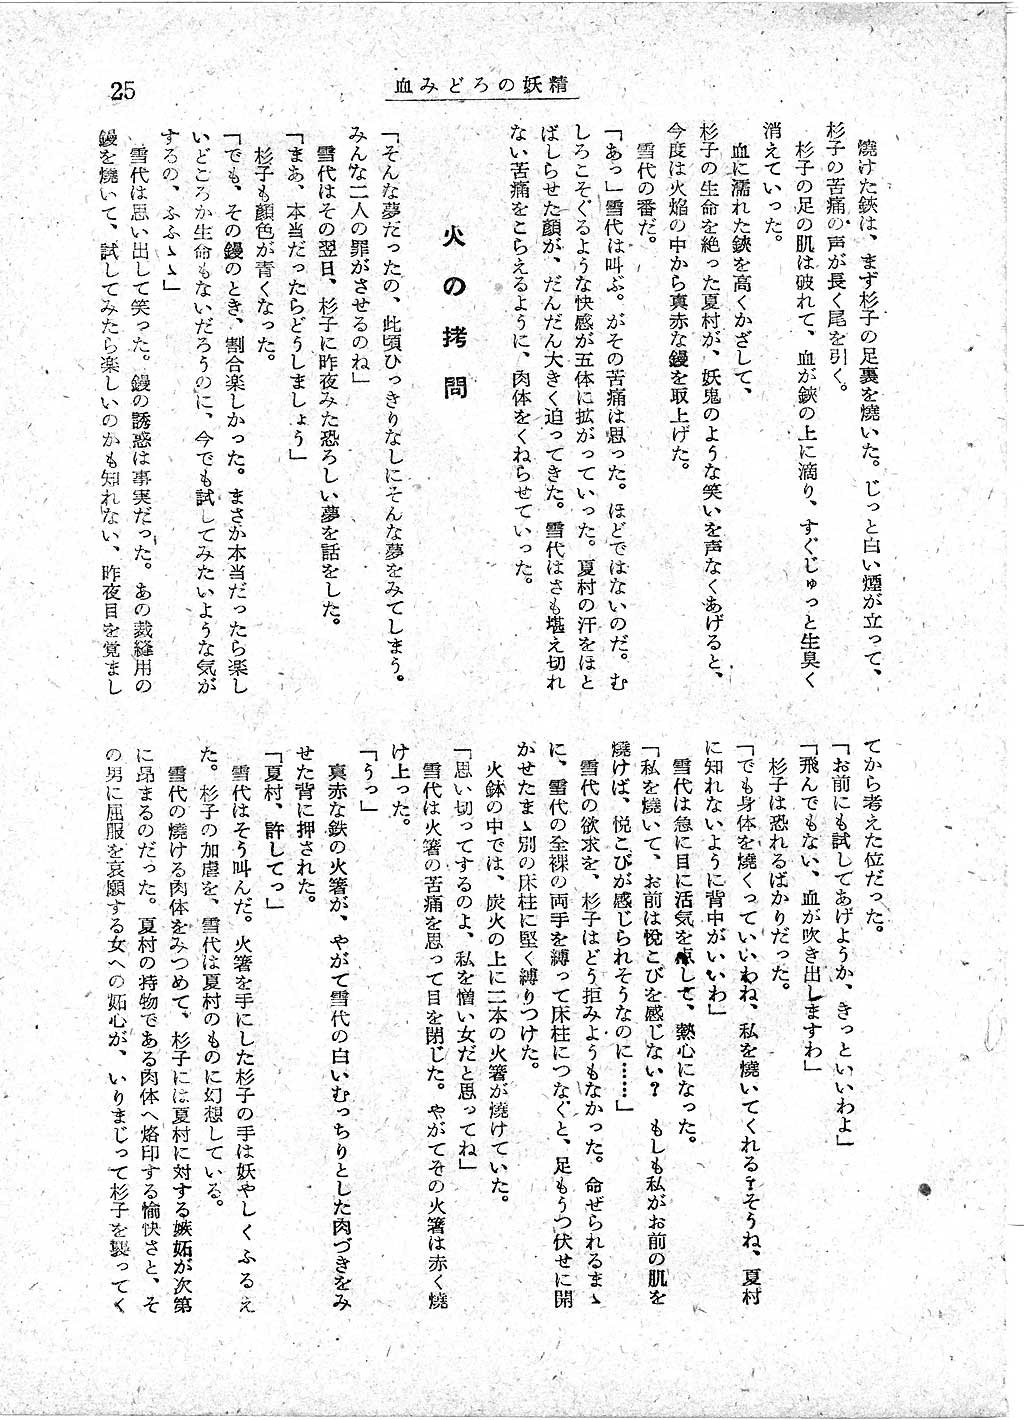 25
血みどろの妖精
燒けた鋏は、まず杉子の足裏を燒いた。じっと白い煙が立って、
杉子の苦痛の声が長く尾を引く。
杉子の足の肌は破れて、血が鋏の上に滴り、すぐじゅっと生臭く
消えていった。
血に濡れた鋏を高くかざして、
杉子の生命を絶った夏村が、妖鬼のような笑いを声なくあげると、
今度は火焔の中から真赤な鏝を取上げた。
雪代の番だ。
「あっ」雪代は叫ぶ。がその苦痛は思った。ほどではないのだ。む
しろこそぐるような快感が五体に拡がっていった。夏村の汗をほと
ばしらせた顔が、だんだん大きく迫ってきた。雪代はさも堪え切れ
ない苦痛をこらえるように、肉体をくねらせていった。
火の拷問
「そんな夢だったの、此頃ひっきりなしにそんな夢をみてしまう。
みんな二人の罪がさせるのね」
雪代はその翌日、杉子に昨夜みた恐ろしい夢を話をした。
「まあ、本当だったらどうしましょう」
杉子も顔色が青くなった。
「でも、その鏝のとき、割合楽しかった。まさか本当だったら楽し
いどころか生命もないだろうのに、今でも試してみたいような気が
するの、ふふゝゝ」
雪代は思い出して笑った。鏝の誘惑は事実だった。あの裁縫用の
鏝を燒いて、試してみたら楽しいのかも知れない、昨夜目を覚まし
てから考えた位だった。
「お前にも試してあげようか、きっといいわよ」
「飛んでもない、血が吹き出しますわ」
杉子は恐れるばかりだった。
「でも身体を燒くっていいわね、私を燒いてくれる?そうね、夏村
に知れないように背中がいいわ」
雪代は急に目に活気を点して、熱心になった。
「私を燒いて、お前は悦こびを感じない? もしも私がお前の肌を
燒けば、悦こびが感じられそうなのに……」
雪代の欲求を、杉子はどう拒みようもなかった。命ぜられるまゝ
に、雪代の全裸の両手を縛って床柱につなぐと、足もうつ伏せに開
かせたまゝ別の床柱に堅く縛りつけた。
火鉢の中では、炭火の上に二本の火箸が燒けていた。
「思い切ってするのよ、私を憎い女だと思ってね」
雪代は火箸の苦痛を思って目を閉じた。やがてその火箸は赤く燒
け上った。
「うっ」
真赤な鉄の火箸が、やがて雪代の白いむっちりとした肉づきをみ
せた背に押された。
「夏村、許してっ」
雪代はそう叫んだ。火箸を手にした杉子の手は妖やしくふるえ
た。杉子の加虐を、雪代は夏村のものに幻想している。
雪代の燒ける肉体をみつめて、杉子には夏村に対する嫉妬が次第
に昂まるのだった。夏村の持物である肉体へ烙印する愉快さと、そ
の男に屈服を哀願する女への妬心が、いりまじって杉子を襲ってく